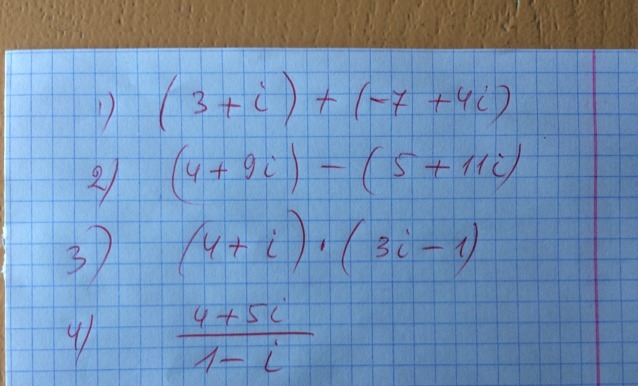 1) (3 + i) + (-7 + 4i)
2) (4 + 9i) - (5 + 11i)
3) (4 + i) · (3i - 1)
4) \frac{4 + 5i}{1 - i}